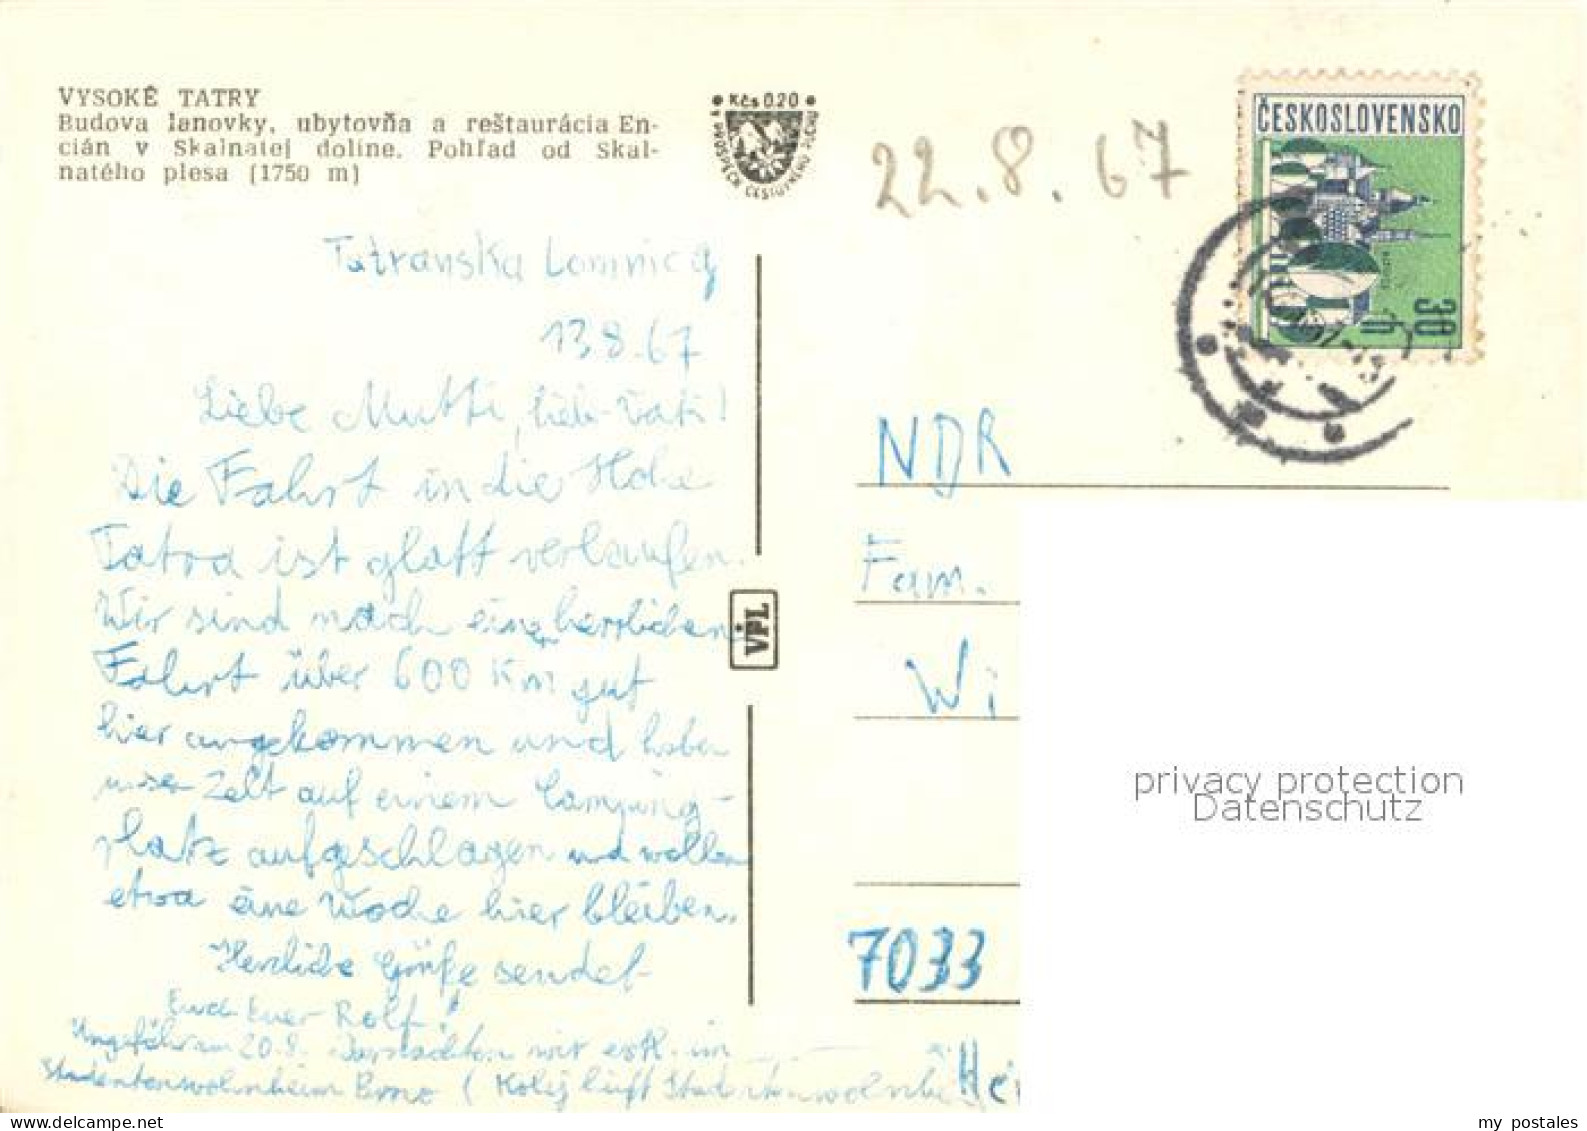 VYSOKÉ TATRY
Budova lanovky, ubytovňa a reštaurácia En-
cián v Skalnatej doline. Pohľad od Skal-
natého plesa (1750 m)
Kčs 0.20
22.8.67
ČESKOSLOVENSKO
30 h
Tatranska Lomnica
13.8.67
Liebe Mutti, lieb. Vati!
Die Fahrt in die Hohe
Tatra ist glatt verlaufen.
Wir sind nach einer herrlichen
Fahrt über 600 Km gut
hier angekommen und haben
unser Zelt auf einem Camping-
platz aufgeschlagen und wollen
etwa eine Woche hier bleiben.
Herzliche Grüße sendet
Euch Euer Rolf!
Ungefähr am 20.8. wir evtl. im
Studentenwohnheim Brno (Kolej heißt Studentenwohnheim
VPL
NDR
Fam.
Wi
7033
Hei
privacy protection
Datenschutz
my postales